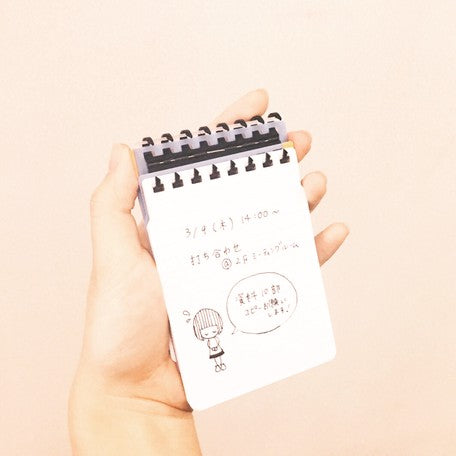 3/9(木) 14:00〜
打ち合わせ
@2Fミーティングルーム
資料10部
コピーお願い
します!